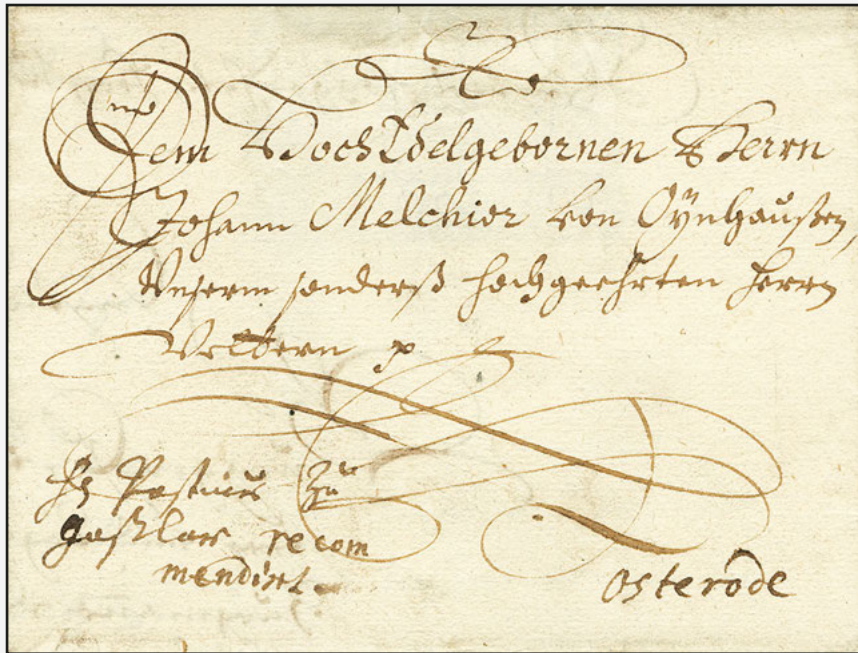 Dem HochEdelgebornen Herrn
Johann Melchior von Oÿnhaußen,
Unserm sonderß hochgeehrten Herrn
Vettern p
Postmr zu
Goßlar recom
mendirt
Osterode